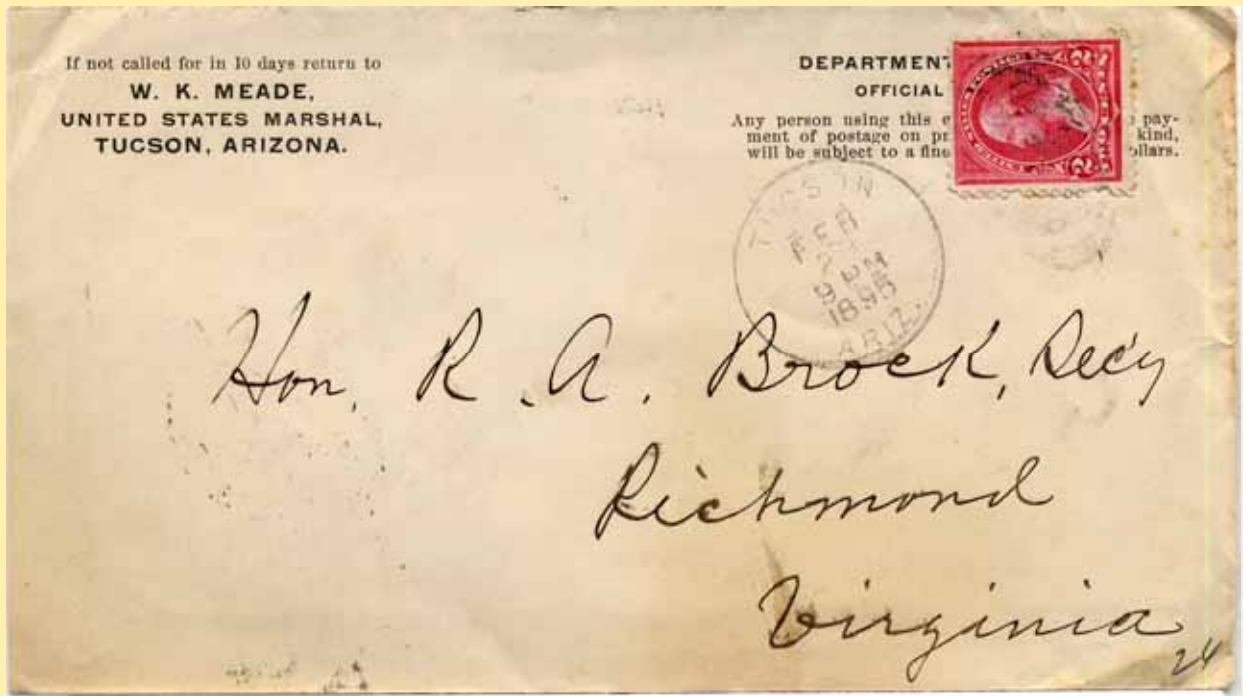 If not called for in 10 days return to
W. K. MEADE,
UNITED STATES MARSHAL,
TUCSON, ARIZONA.
DEPARTMENT
OFFICIAL
Any person using this e pay-
ment of postage on pr kind,
will be subject to a fine ollars.
2 2
TUCSON
FEB
2
9 PM
1895
ARIZ.
Hon. R. A. Brock, Sec'y
Richmond
Virginia
24